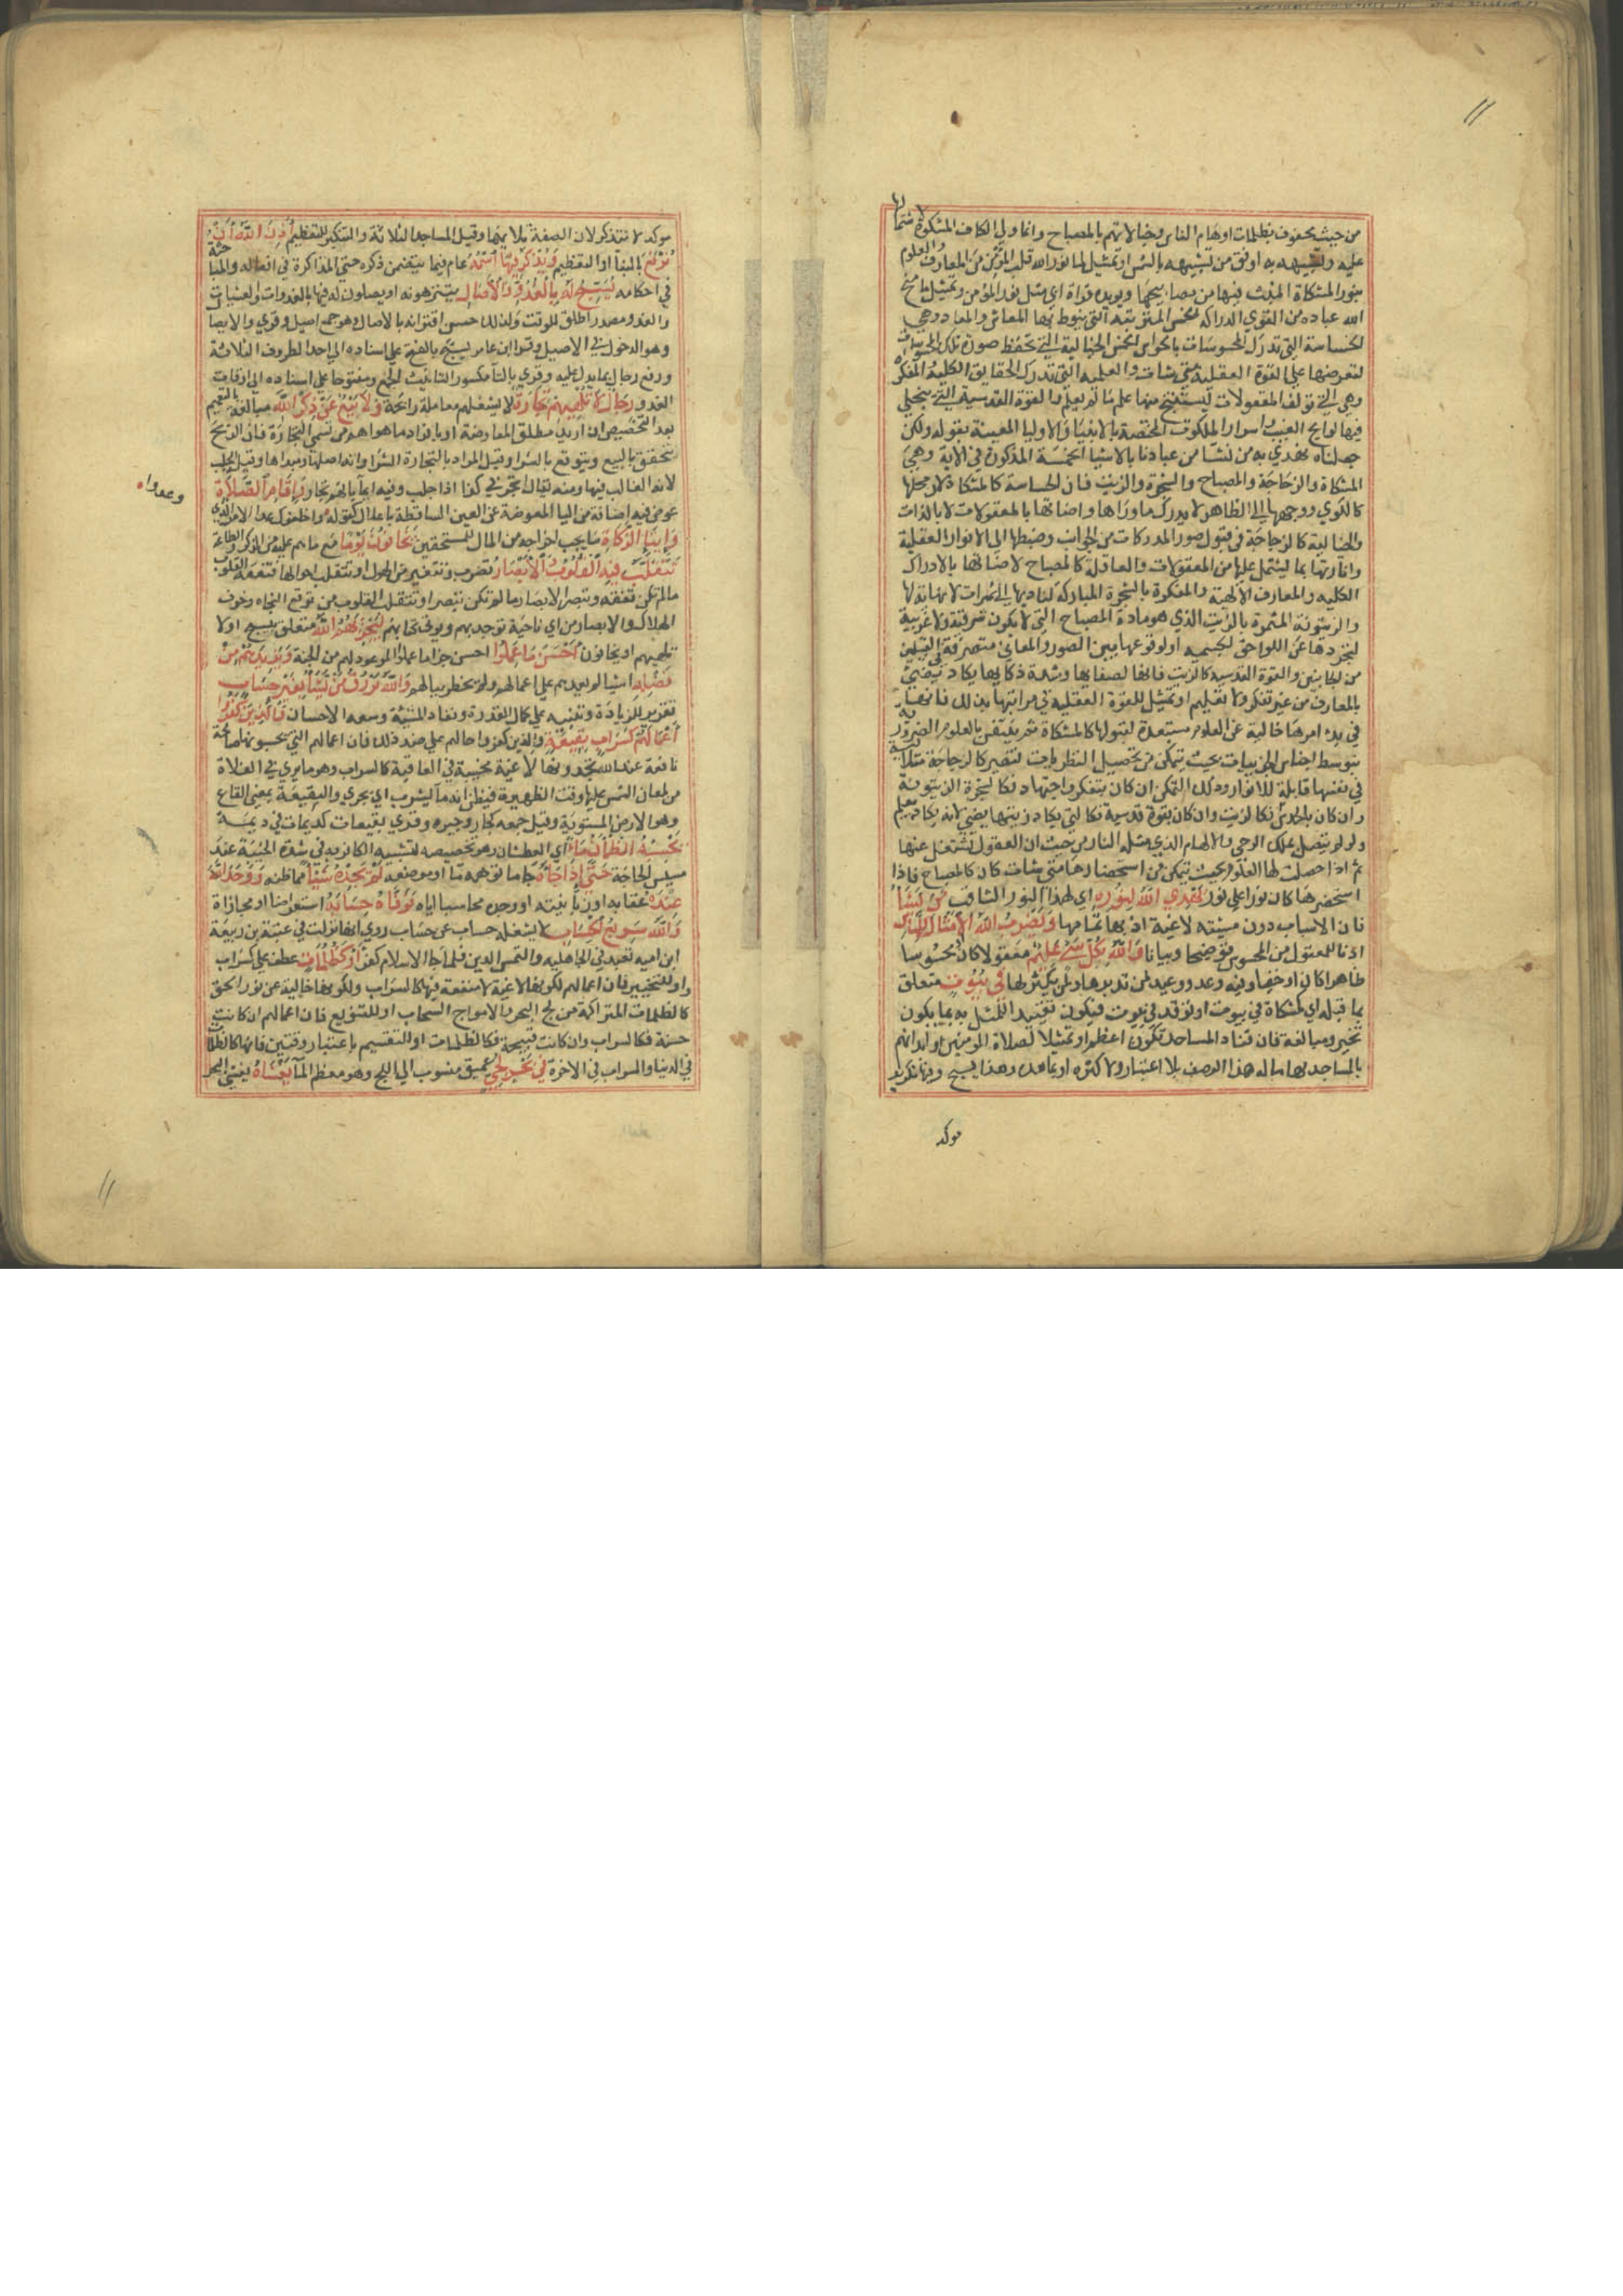 ١١
من حيث محفوف بظلمات اوهام الناس وخيالاتهم بالمصباح وانما ولي الكاف المشكوة لاشتمالها
عليه وتشبيهه به اوفق من تشبيهه بالشمس او تمثيل لما نور الله قلب المؤمن من المعارف والعلوم
بنور المشكاة المنبث فيها من مصباحها ويويده قراة ابي مثل نور المؤمن وتمثيل لما منح
الله عباده من القوي الدراكه الخمس المترتبة التي ينوط بها المعاش والمعاد وهي
الحساسة التي تدرك المحسوسات بالحواس الخمس والخيالية التي تحفظ صورة تلك المحسوسات
لتعرضها علي القوة العقلية متي شات والعلمية التي تدرك الحقايق الكلية والمفكرة
وهي التي تولف المعقولات ليستنتج منها علم ما لم يعلم والقوة القدسية التي يتجلي
فيها لوايح الغيب واسرار الملكوت المختصة بالانبيا والاوليا المعينة بقوله ولكن
جعلناه نورا نهدي به من نشا من عبادنا بالاشيا الخمسة المذكورة في الاية وهي
المشكاة والزجاجة والمصباح والشجرة والزيت فان الحساسة كالمشكاة لان محلها
كالكوي ووجهها الي الظاهر لا يدرك ماوراها واضاتها بالمعقولات لا بالذات
والخيالية كالزجاجة في قبول صور المدركات من الجوانب وضبطها الي الانوار العقلية
وانارتها بما يشتمل عليها من المعقولات والعاقلة كالمصباح لاضاتها بالادراك
الكليه والمعارف الالهية والمفكرة بالشجرة المباركة لتاديها الي ثمرات لا نهاية لها
والزيتونة المثمرة بالزيت الذي هو مادة المصباح التي لا تكون شرقية ولا غربية
لتجردها عن اللواحق الجسميه او لوقوعها بين الصور والمعاني متصرفة في القبيلين
من الجانبين والقوة القدسية كالزيت فانها لصفايها وشدة ذكايها يكاد يضيء
بالمعارف من غير تفكر ولا تعليم او تمثيل للقوة العقلية في مراتبها بذلك فانها
في بدء امرها خالية عن العلوم مستعدة لقبولها كالمشكاة ثم ينتقش بالعلوم الضرورية
بتوسط احساس الجزييات بحيث يتمكن من تحصيل النظريات فتصير كالزجاجة متلالية
في نفسها قابلة للانوار وذلك التمكن ان كان بتفكر واجتهاد فكالشجرة الزيتونة
وان كان بالحدس فكالزيت وان كان بقوة قدسية فكالتي يكاد زيتها يضيء لانه يكاد يعلم
ولو لم يتصل بملك الوحي والالهام الذي مثله النار من حيث ان العقول تشتعل عنها
ثم اذا حصلت لها العلوم بحيث يتمكن من استحضارها متي شات كان كالمصباح فاذا
استحضرها كان نورا علي نور يهدي الله لنوره اي لهذا النور الثاقب من يشا
فان الاسباب دون مشيته لاغية اذ بها تمامها ويضرب الله الامثال للناس
ادنا للمعقول من المحسوس توضيحا وبيانا والله بكل شي عليم معقولا كان او محسوسا
ظاهرا كان او خفيا وفيه وعد ووعيد لمن تدبرها ولمن لم يكترث لها في بيوت متعلق
بما قبله اي كمشكاة في بيوت او توقد في بيوت فيكون تقييدا للممثل به بما يكون
تحيرا ومبالغة فان قناديل المساجد تكون اعظم او تمثيلا لصلاة المومنين او ابدانهم
بالمساجد ... هذا الوصف بلا اعتبار ولا كثره او بما بعده وهذا يسبح وفيها تكرير
موكد
موكد لا بتذكر لان الصفة يلا بها وقيل المساجد الثلاثة والتنكير للتعظيم اذن الله ان
ترفع بالبنا او التعظيم ويذكر فيها اسمه عام فيما يتضمن ذكره حتي المذاكرة في افعاله والمباحثة
في احكامه يسبح له بالغدو والاصال يتنزهونه او يصلون له فيها بالغدوات والعشيات
والغدو مصدر اطلق للوقت ولذلك حسن اقترانه بالاصال وهو جمع اصيل وقري والايصال
وهو الدخول في الاصيل وقرا ابن عامر يسبح بالفتح علي اسناده الي احد الظروف الثلاثة
ورفع رجال بما يدل عليه وقري بالتا مكسورا لتانيث الجمع ومفتوحا علي اسناده الي اوقات
الغدو رجال لا تلهيهم تجارة لا يشغلهم معاملة رابحة ولا بيع عن ذكر الله مبالغة بالتعميم
بعد التخصيص ان اريد مطلق المعاوضة او بافراد ما هو اهم من قسمي التجارة فان الربح
يتحقق بالبيع ويتوقع بالشرا وقيل المراد بالتجارة الشرا وانه اصلها ومبداها وقيل الجلب
لانه الغالب فيها ومنه يقال تجر في كذا اذا جلب وفيه ايما بانهم تجار واقام الصلاة
عوض فيه اضافة من التا المعوضة عن العين الساقطة بالاعلال كقوله واخلفوك عدا الامر الذي
وعدوا
وايتا الزكاة ما يجب اخراجه من المال للمستحقين يخافون يوما مع ما هم عليه من الذكر والطاعة
تتقلب فيه القلوب والابصار تضرب وتتغير من الهول او تتقلب احوالها فتفقه القلوب
مالم تكن تفقه وتبصر الابصار ما لم تكن تبصر او تتقلب القلوب من توقع النجاه وخوف
الهلاك والابصار من اي ناحية توخذ بهم ويوتي كتابهم ليجزيهم الله متعلق بيسبح او لا
تلهيهم او يخافون احسن ما عملوا احسن جزا ما عملوا الموعود لهم من الجنة ويزيدهم من
فضله اشيا لم يعدهم علي اعمالهم ولم يخطر ببالهم والله يرزق من يشا بغير حساب
تقرير للزيادة وتنبيه علي كمال القدرة ونفاد المشيئة وسعه الاحسان والذين كفروا
اعمالهم كسراب بقيعة والذين كفروا حالهم علي ضد ذلك فان اعمالهم التي يحسبونها صالحة
نافعة عند الله يجدونها لاغية مخيبة في العاقبة كالسراب وهو ما يري في الفلاة
من لمعان الشمس عليها وقت الظهيرة فيظن انه ما يسرب اي يجري والبقيعة بمعني القاع
وهو الارض المستوية وقيل جمعه كجار وجيره وقري بقيعات كديمات في ديمة
يحسبه الظمان ماء اي العطشان وتخصيصه لتشبيه الكافر به في شدة الخيبة عند
مسيس الحاجة حتي اذا جاه جا ما توهمه ما او موضعه لم يجده شيا مما ظنه ووجد الله
عنده عقابه او زبانيته او وجده محاسبا اياه فوفاه حسابه استعراضا او مجازاة
والله سريع الحساب لا يشغله حساب عن حساب روي انها نزلت في عتبة بن ربيعة
ابن اميه تعبد في الجاهليه والتمس الدين فلما جا الاسلام كفر او كظلمات عطف علي كسراب
واو للتخيير فان اعمالهم لكونها لاغية لا منفعة فيها كالسراب ولكونها خالية عن نور الحق
كالظلمات المتراكمة من لج البحر والامواج والسحاب او للتنويع فان اعمالهم ان كانت
حسنة فكالسراب وان كانت قبيحة فكالظلمات او للتقسيم باعتبار وقتين فانها كالظلمات
في الدنيا والسراب في الاخرة في بحر لجي عميق منسوب الي اللج وهو معظم الما يغشاه يغشي البحر
١١